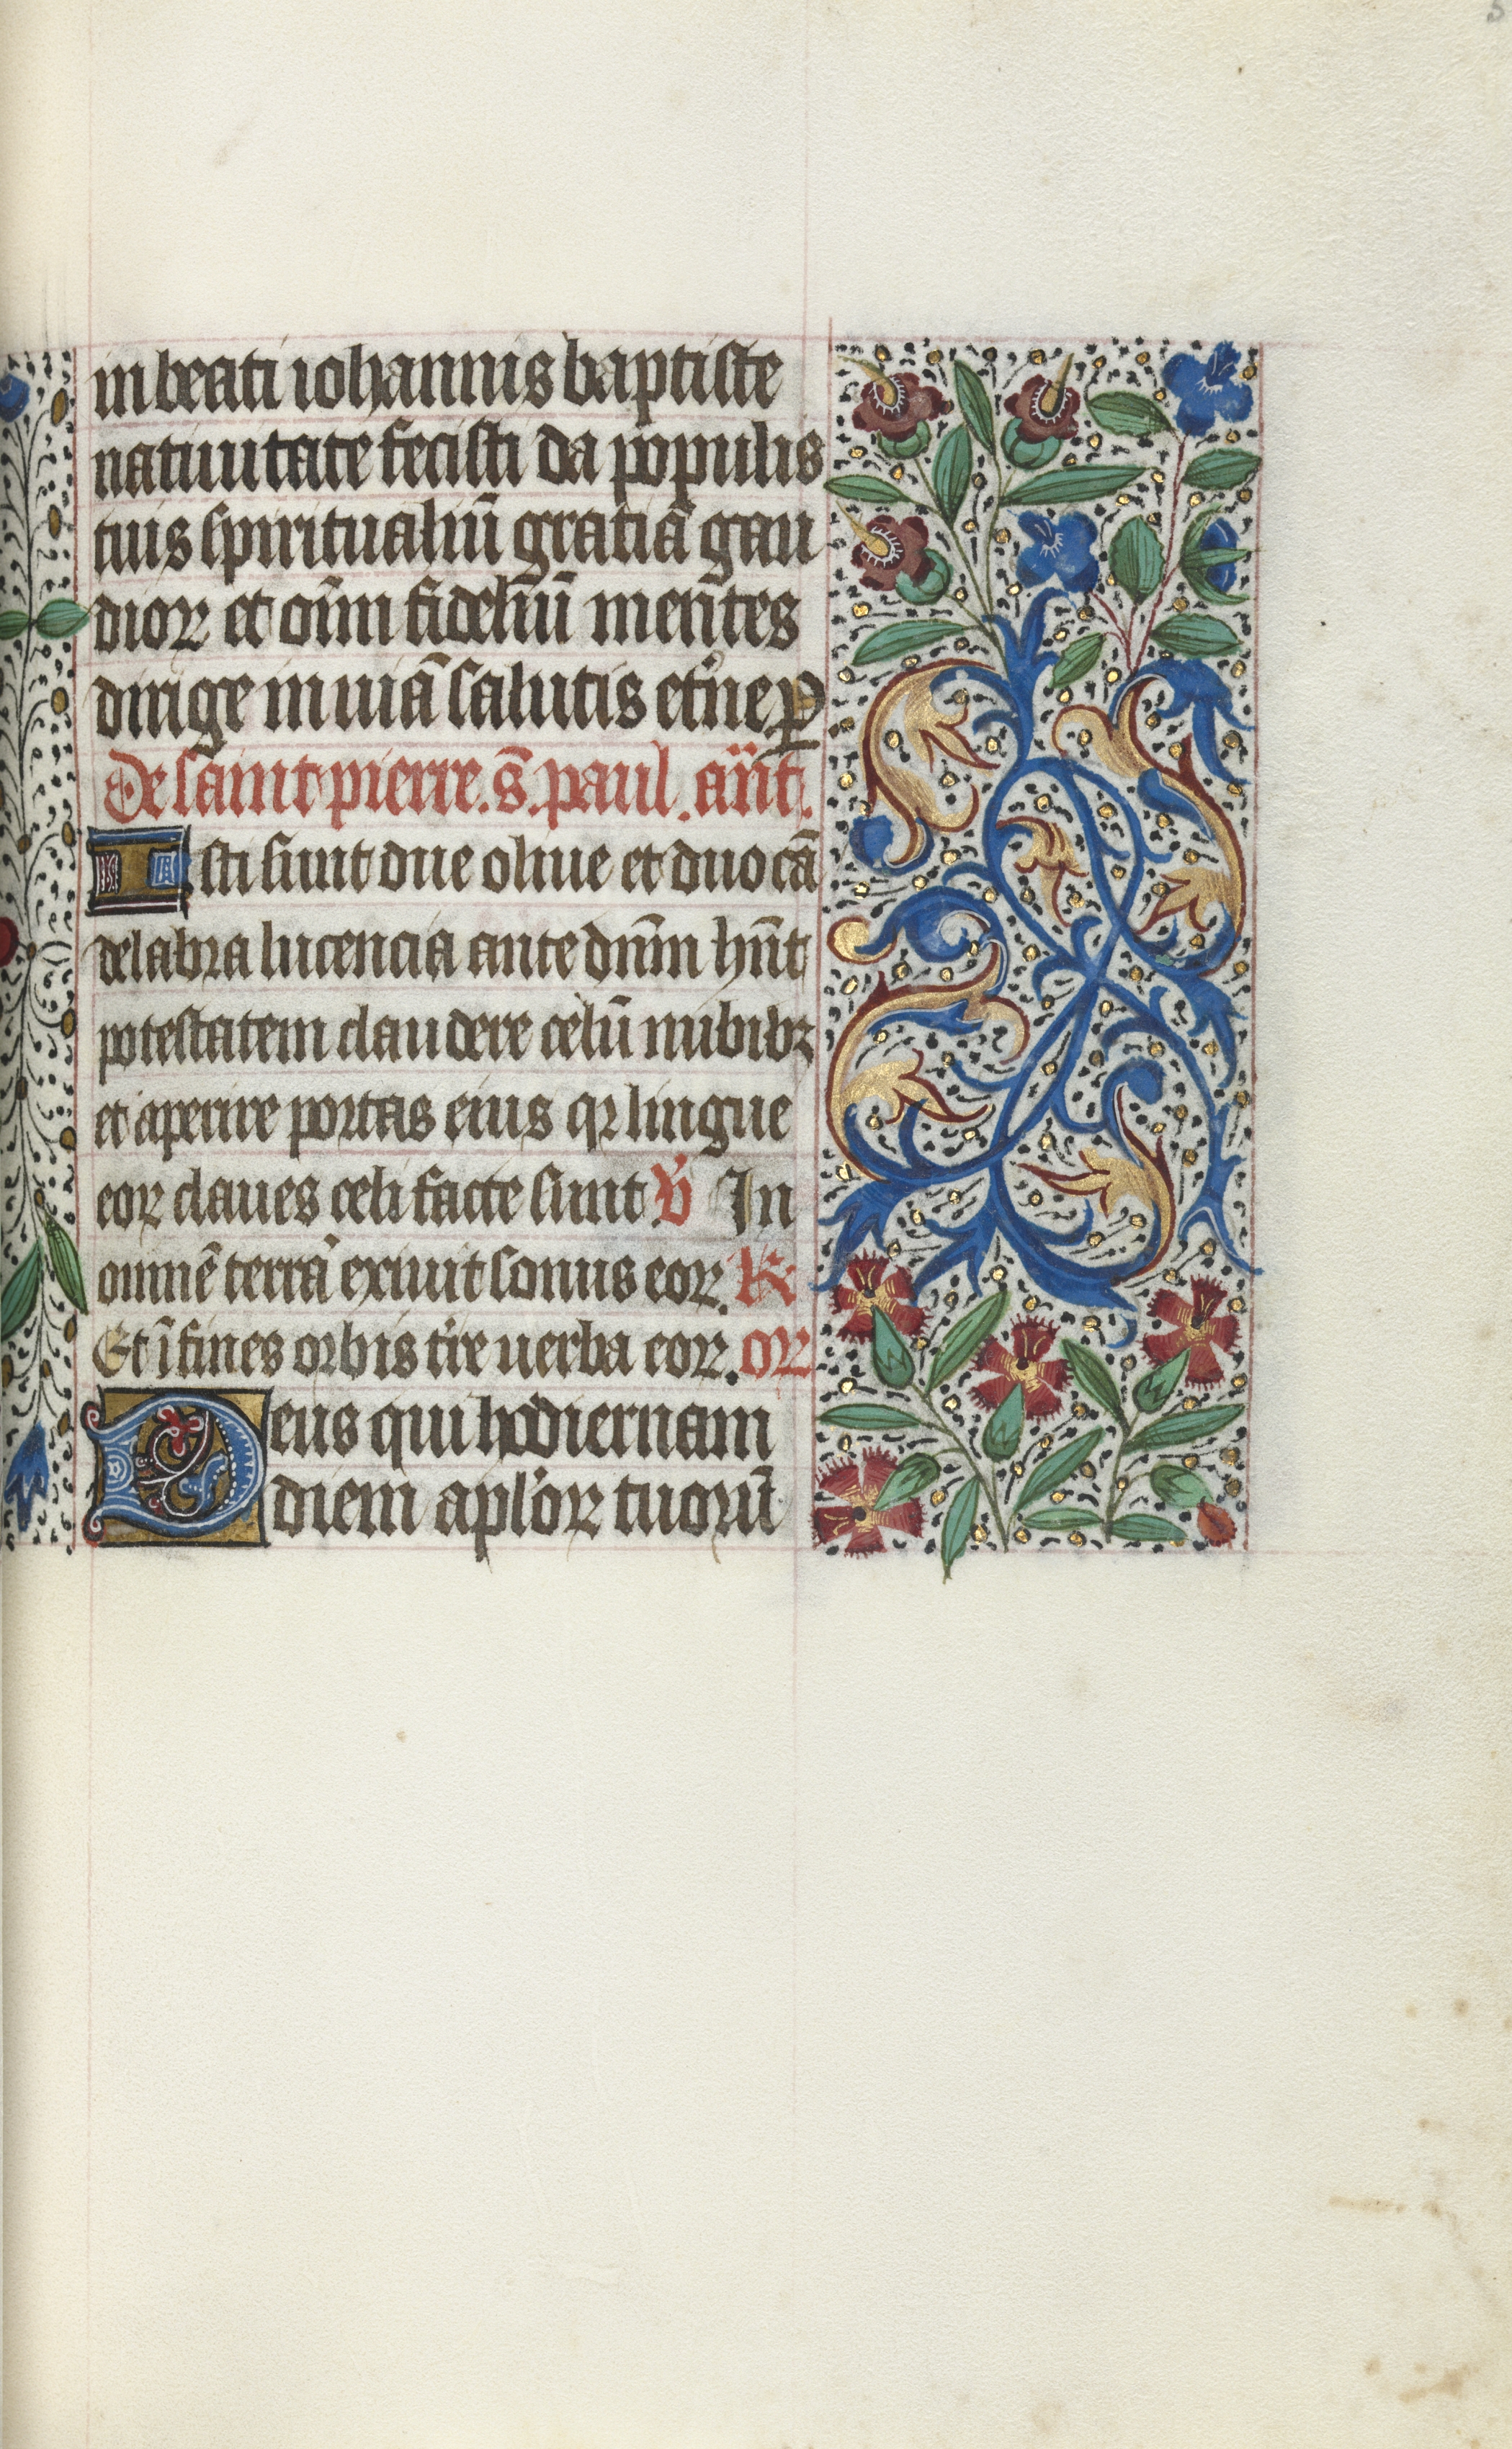 in beati iohannis baptiste
natiuitate fecisti da populis
tuis spiritualiū gratiā gau
dioꝝ et oīm fideliū mentes
dirige in uiā salutis et̄ne ꝑ
De saint pierre. s̄. paul. an̄t.
Isti sunt due oliue et duo cā
delabra lucencia ante dn̄m hn̄t
potestatem claudere celū nubibꝫ
et aperire portas eius qꝛ lingue
eoꝝ claues celi facte sunt v̄ In
omnē terrā exiuit sonus eoꝝ. R
Et ī fines orbis t̄re uerba eoꝝ. oꝝ
Deus qui hodiernam
diem apl'oꝝ tuorū